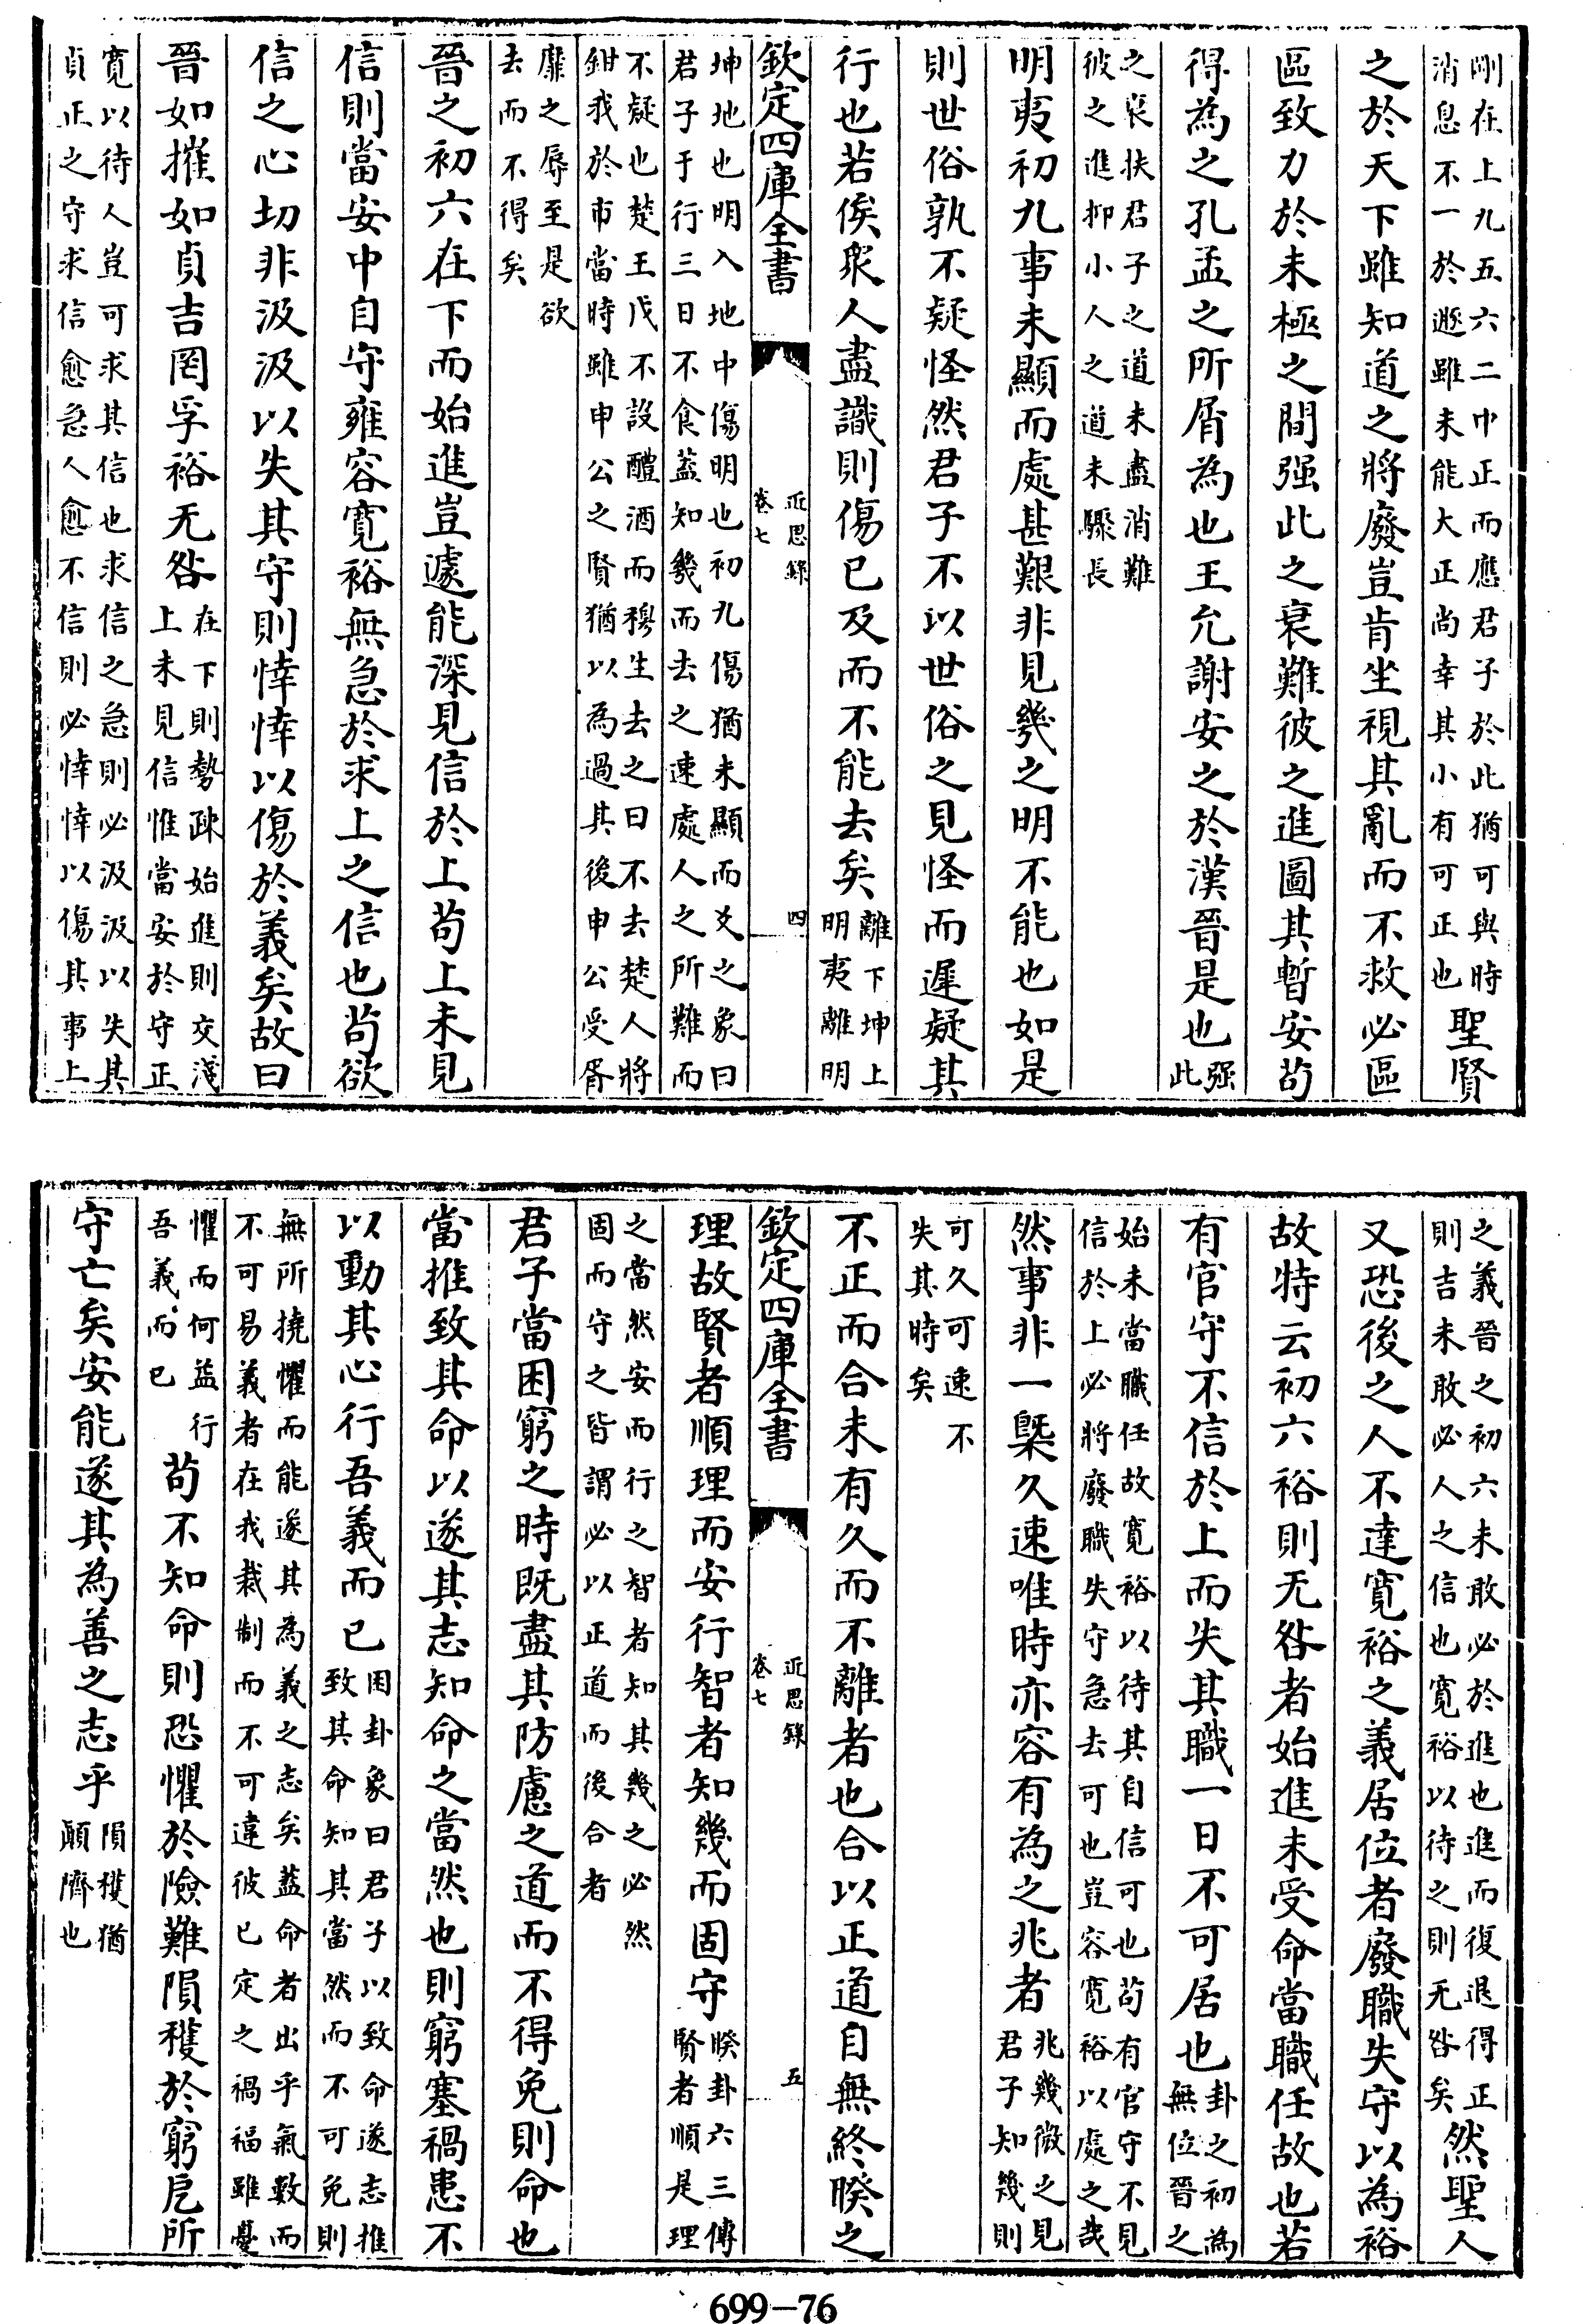 剛在上九五六二中正而應君子於此猶可與時
消息不一於遯雖未能大正尚幸其小有可正也
聖賢
之於天下雖知道之將廢豈肯坐視其亂而不救必區
區致力於未極之間强此之衰難彼之進圖其暫安茍
得為之孔孟之所屑為也王允謝安之於漢晉是也
强
此
之衰扶君子之道未盡消難
彼之進抑小人之道未驟長
明夷初九事未顯而處甚艱非見幾之明不能也如是
則世俗孰不疑怪然君子不以世俗之見怪而遲疑其
行也若俟衆人盡識則傷已及而不能去矣
離下坤上
明夷離明
欽定四庫全書
近思錄
卷七
四
坤地也明入地中傷明也初九傷猶未顯而爻之象曰
君子于行三日不食蓋知幾而去之速處人之所難而
不疑也楚王戊不設醴酒而穆生去之曰不去楚人將
鉗我於市當時雖申公之賢猶以為過其後申公受胥
靡之辱至是欲
去而不得矣
晉之初六在下而始進豈遽能深見信於上茍上未見
信則當安中自守雍容寛裕無急於求上之信也茍欲
信之心切非汲汲以失其守則悻悻以傷於義矣故曰
晉如摧如貞吉罔孚裕无咎
在下則勢疎始進則交淺
上未見信惟當安於守正
寛以待人豈可求其信也求信之急則必汲汲以失其
貞正之守求信愈急人愈不信則必悻悻以傷其事上
之義晉之初六未敢必於進也進而復退得正
則吉未敢必人之信也寛裕以待之則无咎矣
然聖人
又恐後之人不達寛裕之義居位者廢職失守以為裕
故特云初六裕則无咎者始進未受命當職任故也若
有官守不信於上而失其職一日不可居也
卦之初為
無位晉之
始未當職任故寛裕以待其自信可也茍有官守不見
信於上必將廢職失守急去可也豈容寛裕以處之哉
然事非一槩久速唯時亦容有為之兆者
兆幾微之見
君子知幾則
可久可速不
失其時矣
不正而合未有久而不離者也合以正道自無終睽之
欽定四庫全書
近思錄
卷七
五
理故賢者順理而安行智者知幾而固守
睽卦六三傳
賢者順是理
之當然安而行之智者知其幾之必然
固而守之皆謂必以正道而後合者
君子當困窮之時既盡其防慮之道而不得免則命也
當推致其命以遂其志知命之當然也則窮塞禍患不
以動其心行吾義而已
困卦象曰君子以致命遂志推
致其命知其當然而不可免則
無所撓懼而能遂其為義之志矣蓋命者出乎氣數而
不可易義者在我裁制而不可違彼已定之禍福雖憂
懼而何益行
吾義而已
茍不知命則恐懼於險難隕穫於窮戹所
守亡矣安能遂其為善之志乎
隕穫猶
顚隮也
699—76